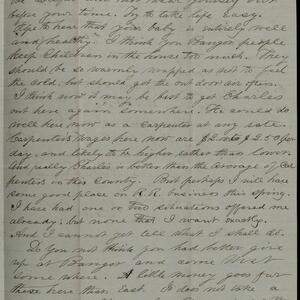 before your time. Try to take life easy.
Hope to hear that your baby is entirely well
and healthy. I think you Bangor people
keep Children in the house too much. They
should be so warmly wrapped as not to feel
the cold, but should get the out door air often.
I think now it may be best to get Charles
out here again somewhere. He could do
well here now as a Carpenter at any rate.
Carpenter's wages here now are $2. to $2.50 per
day, and likely to be higher rather than lower
and really Charles is better than the average of Car
penters in this Country. But perhaps I will have
some good place in R.R. business this spring.
I have had one or two situations offered me
already; but none that I want exactly.
And I cannot yet tell what I shall do.
Do you not think you had better give
up at Bangor and come West
some where. A little money goes far
these here than East. I does not take a